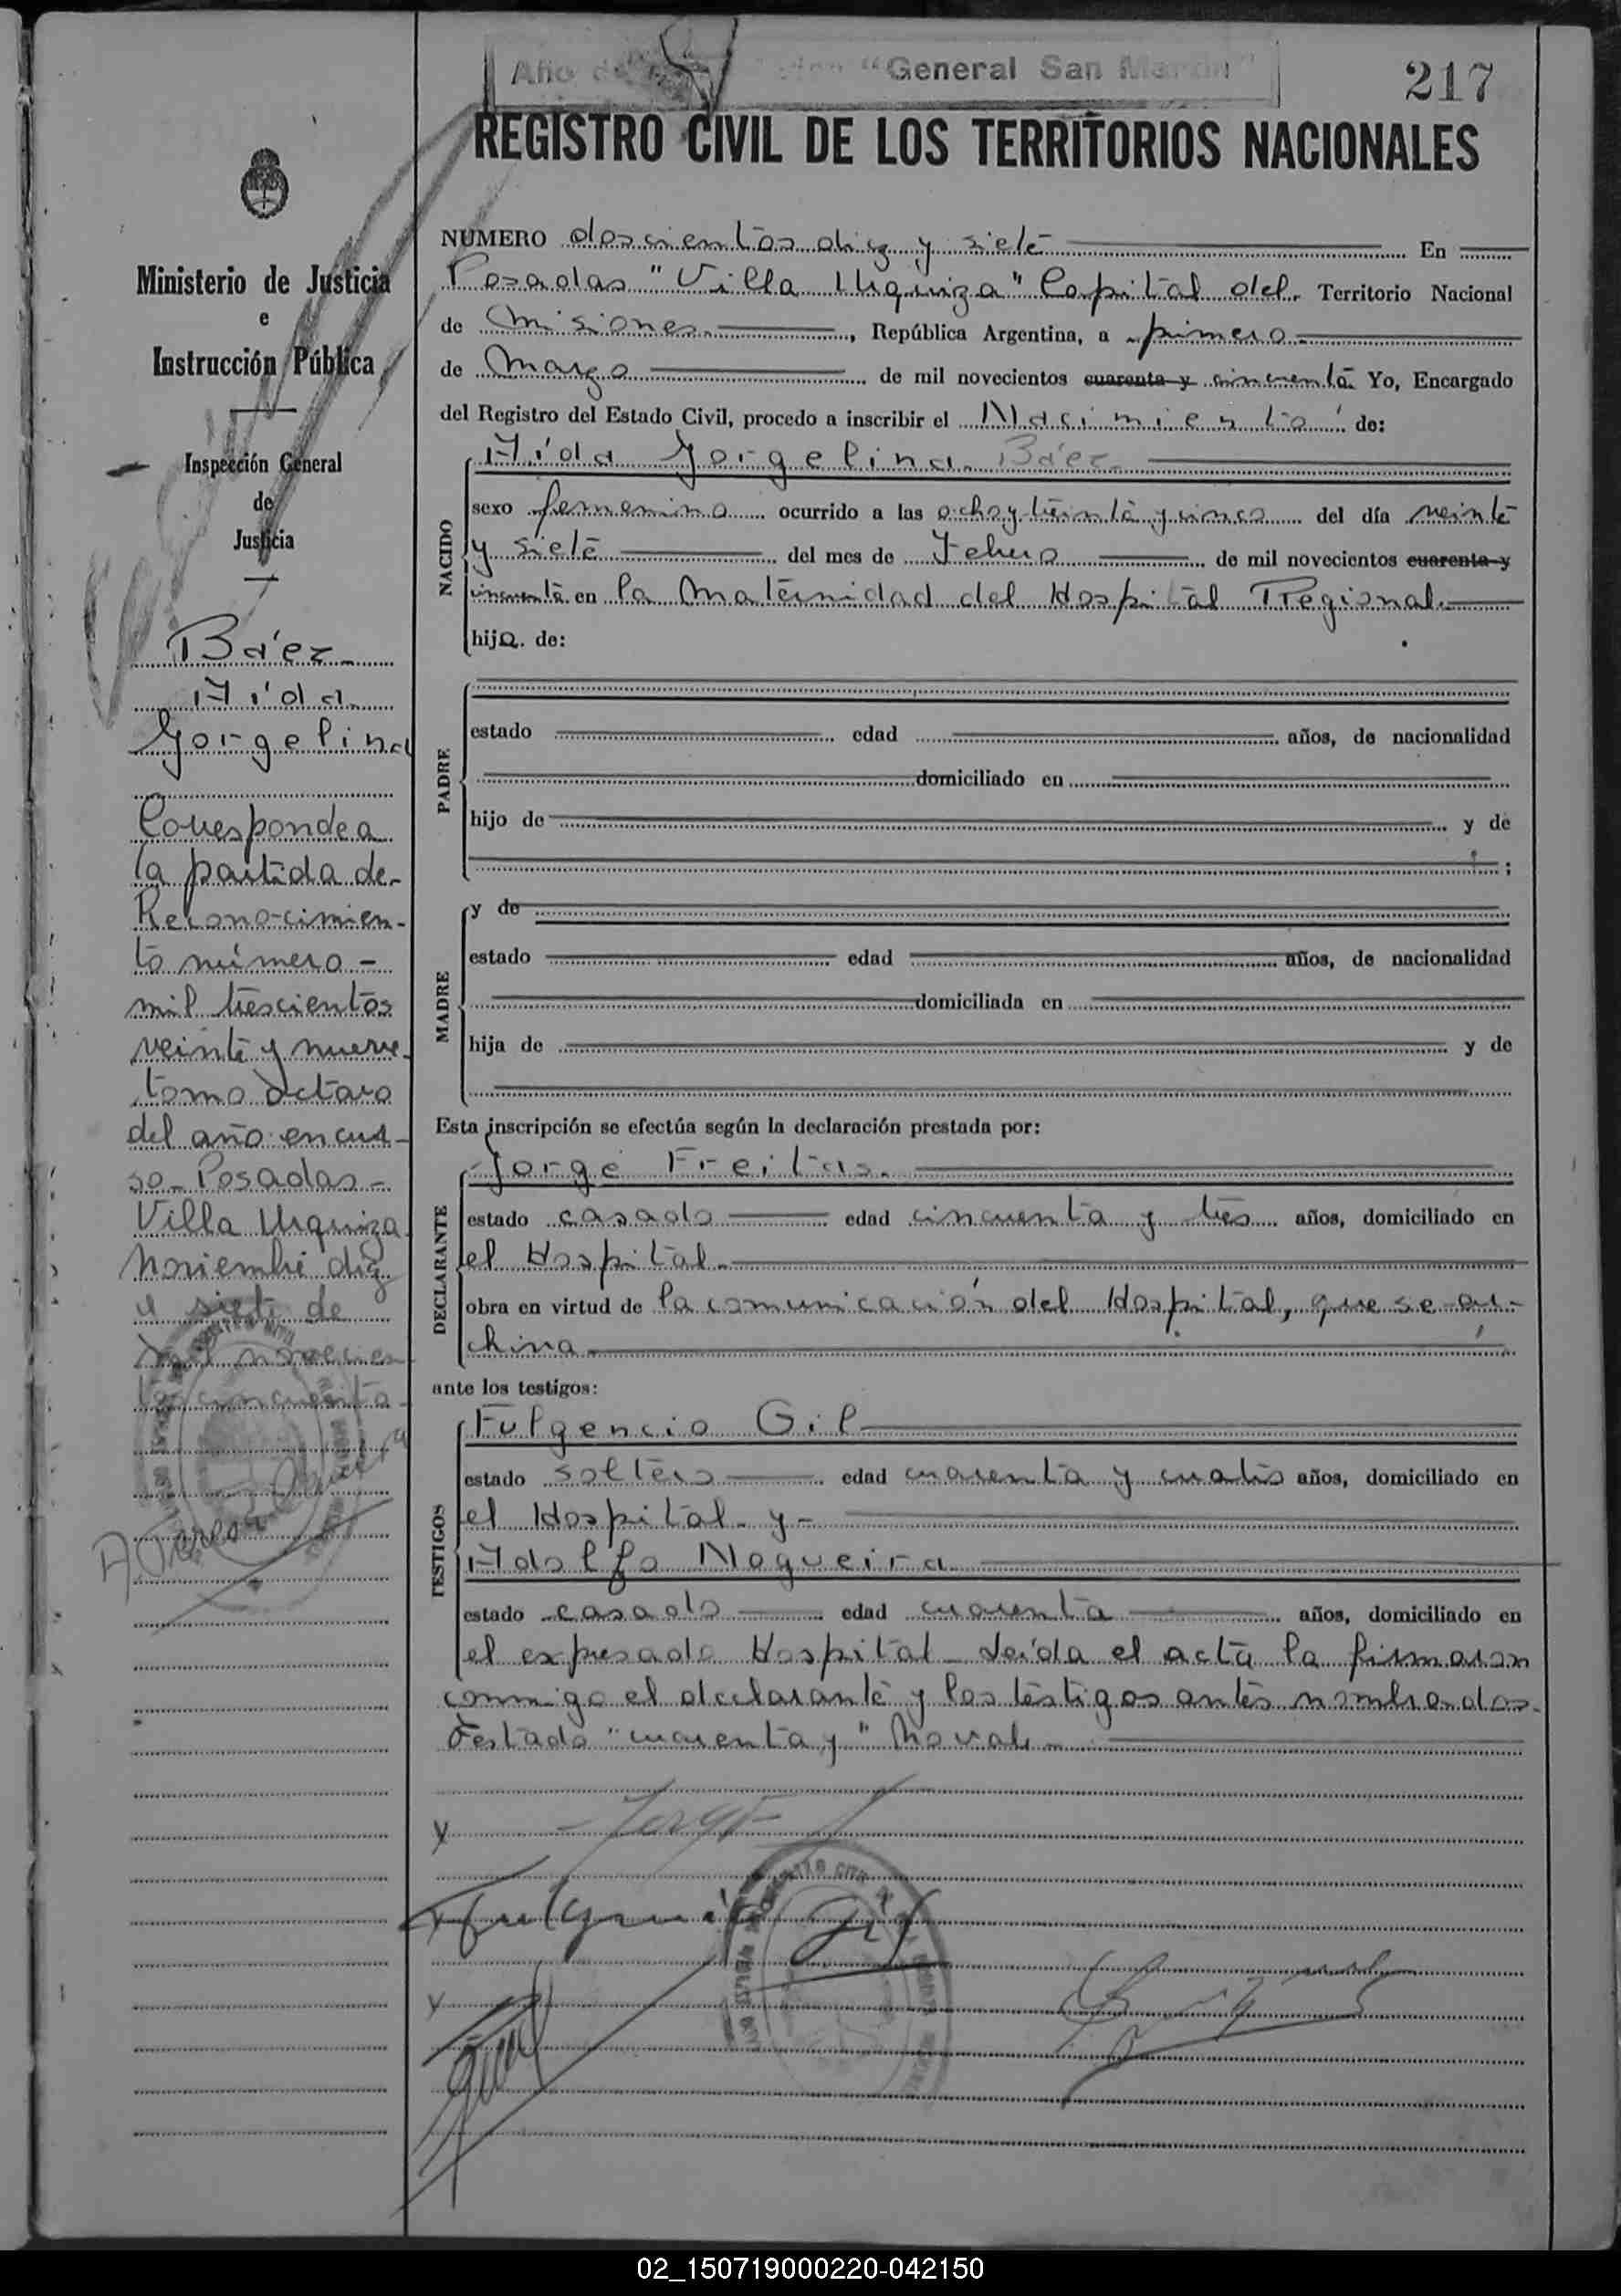 Año de "General San Martín"
217
REGISTRO CIVIL DE LOS TERRITORIOS NACIONALES
Ministerio de Justicia
e
Instrucción Pública
Inspección General
de
Justicia
Báez
Aída
Jorgelina
Corresponde a
la partida de
Reconocimien-
to número -
mil trescientos
veinte y nueve
tomo octavo
del año en cur-
so - Posadas -
Villa Urquiza
Noviembre diez
y siete de
mil novecien
tos cincuenta
A. Teresa
NUMERO doscientos diez y siete En
Posadas "Villa Urquiza" Capital del Territorio Nacional
de Misiones, República Argentina, a primero
de Marzo de mil novecientos cuarenta y cincuenta Yo, Encargado
del Registro del Estado Civil, procedo a inscribir el Nacimiento de:
NACIDO
Aída Jorgelina Báez
sexo femenino ocurrido a las ocho y treinta y cinco del día veinte
y siete del mes de Febrero de mil novecientos cuarenta y
cincuenta en la Maternidad del Hospital Regional.
hija de:
PADRE
estado edad años, de nacionalidad
domiciliado en
hijo de y de
;
MADRE
y de
estado edad años, de nacionalidad
domiciliada en
hija de y de
Esta inscripción se efectúa según la declaración prestada por:
DECLARANTE
Jorge Freitas.
estado casado edad cincuenta y tres años, domiciliado en
el Hospital.
obra en virtud de la comunicación del Hospital, que se ar-
chiva
ante los testigos:
TESTIGOS
Fulgencio Gil
estado soltero edad cuarenta y cuatro años, domiciliado en
el Hospital y -
Adolfo Nogueira
estado casado edad cuarenta años, domiciliado en
el expresado Hospital - Leída el acta la firmaron
conmigo el declarante y los testigos antes nombrados.
Testado "cuarenta y" No vale
Fulgencio Gil
02_150719000220-042150